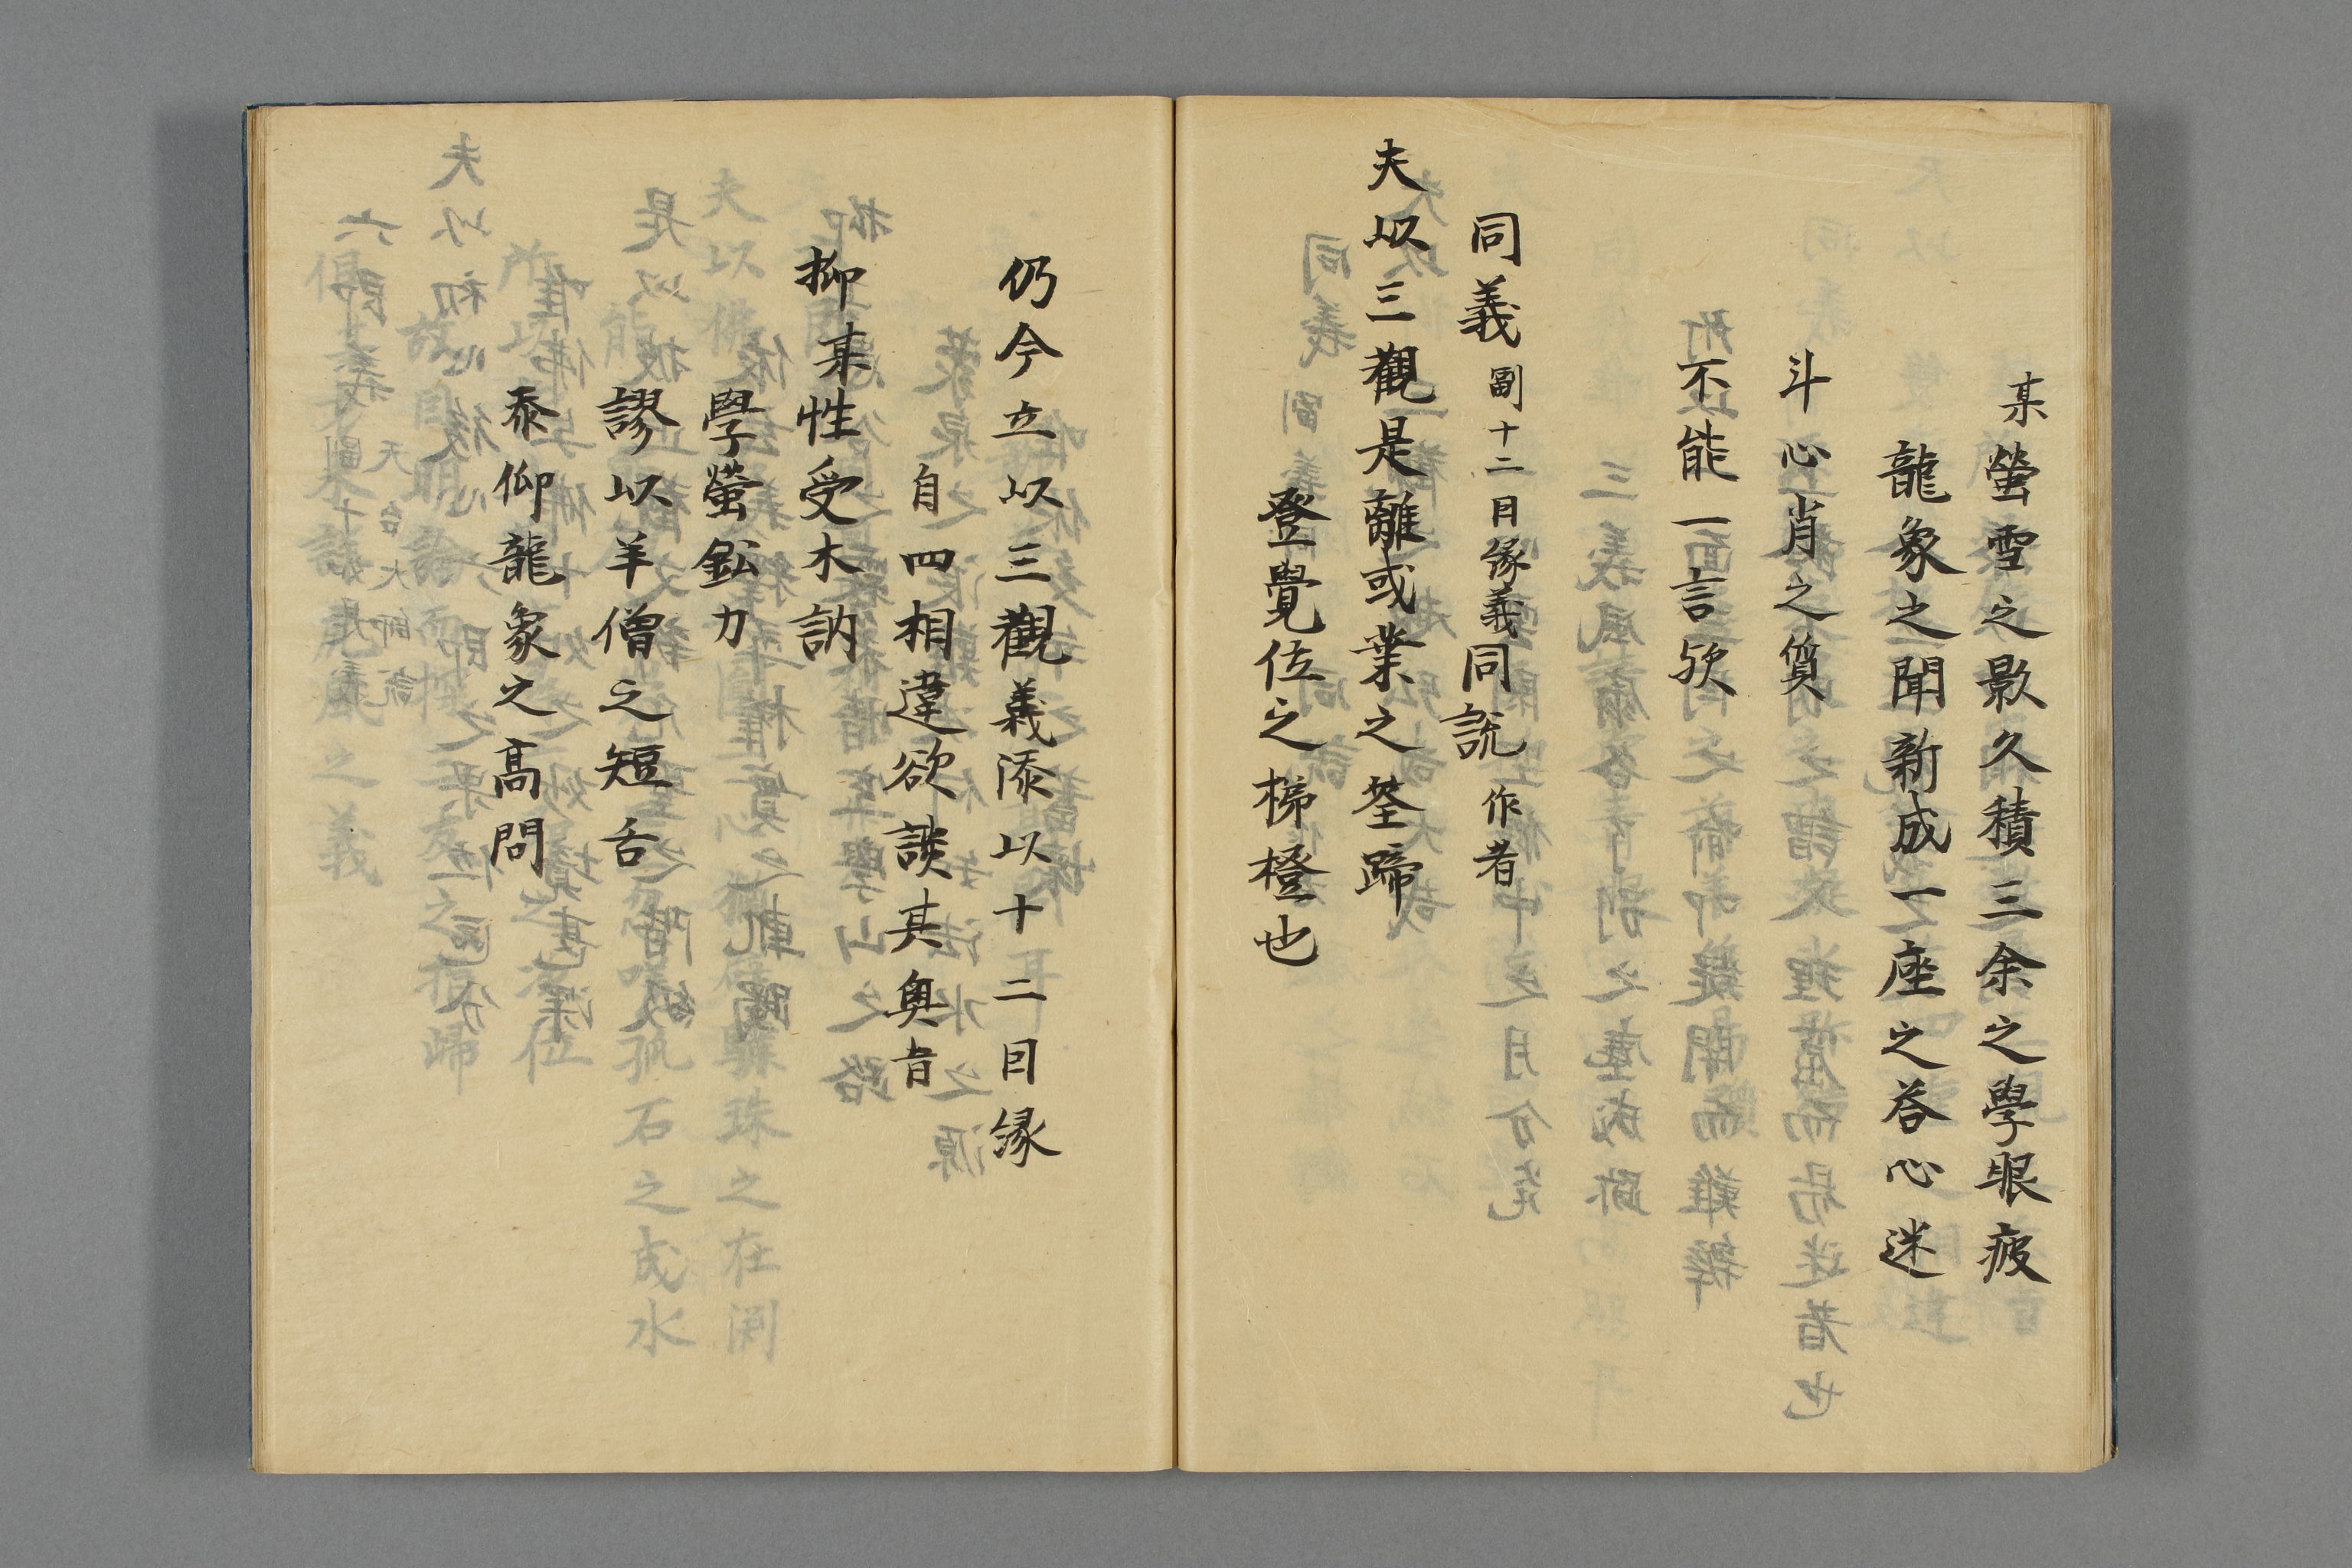 某螢雪之影久積三余之學眼疲
龍象之聞新成一座之答心迷
斗心肖之質
不能一言欤
同義副十二目縁義同説作者
夫以三觀是離或業之荃蹄
登覺位之梯橙也
仍今立以三觀義添以十二目縁
自四相違欲談其奥旨
抑某性受木訥
學螢鈆力
謬以羊僧之短舌
忝仰龍象之高問